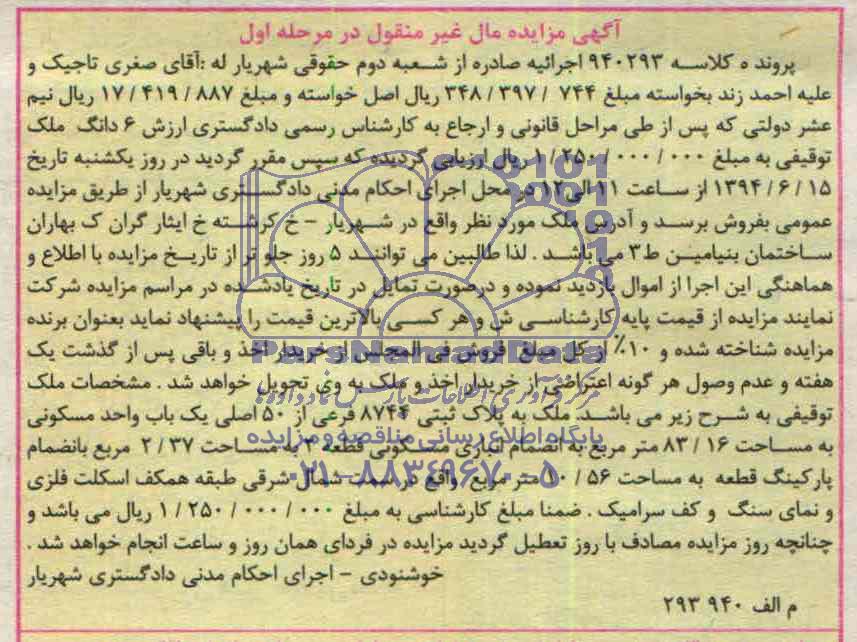 آگهی مزایده مال غیر منقول در مرحله اول
پرونده کلاسه ۹۴۰۲۹۳ اجرائیه صادره از شعبه دوم حقوقی شهریار له :آقای صغری تاجیک و
علیه احمد زند بخواسته مبلغ ۷۴۴ / ۳۹۷ / ۳۴۸ ریال اصل خواسته و مبلغ ۸۸۷ / ۴۱۹ / ۱۷ ریال نیم
عشر دولتی که پس از طی مراحل قانونی و ارجاع به کارشناس رسمی دادگستری ارزش ۶ دانگ ملک
توقیفی به مبلغ ۰۰۰ / ۰۰۰ / ۲۵۰ / ۱ ریال ارزیابی گردیده که سپس مقرر گردید در روز یکشنبه تاریخ
۱۵ / ۶ / ۱۳۹۴ از ساعت ۱۱ الی ۱۲ در محل اجرای احکام مدنی دادگستری شهریار از طریق مزایده
عمومی بفروش برسد و آدرس ملک مورد نظر واقع در شهریار – خ کرشته خ ایثار گران ک بهاران
ساختمان بنیامین ط۳ می باشد . لذا طالبین می توانند ۵ روز جلو تر از تاریخ مزایده با اطلاع و
هماهنگی این اجرا از اموال بازدید نموده و درصورت تمایل در تاریخ یادشده در مراسم مزایده شرکت
نمایند مزایده از قیمت پایه کارشناسی ش و هر کسی بالاترین قیمت را پیشنهاد نماید بعنوان برنده
مزایده شناخته شده و ۱۰٪ از کل مبلغ فروش فی المجلس از خریدار اخذ و باقی پس از گذشت یک
هفته و عدم وصول هر گونه اعتراضی از خریدار اخذ و ملک به وی تحویل خواهد شد . مشخصات ملک
توقیفی به شرح زیر می باشد. ملک به پلاک ثبتی ۸۷۴۴ فرعی از ۵۰ اصلی یک باب واحد مسکونی
به مساحت ۱۶ / ۸۳ متر مربع به انضمام انباری مسکونی قطعه ۳ به مساحت ۳۷ / ۲ مربع بانضمام
پارکینگ قطعه به مساحت ۵۶ / ۱۰ متر مربع واقع در سمت شمال شرقی طبقه همکف اسکلت فلزی
و نمای سنگ و کف سرامیک . ضمنا مبلغ کارشناسی به مبلغ ۰۰۰ / ۰۰۰ / ۲۵۰ / ۱ ریال می باشد و
چنانچه روز مزایده مصادف با روز تعطیل گردید مزایده در فردای همان روز و ساعت انجام خواهد شد .
خوشنودی – اجرای احکام مدنی دادگستری شهریار
م الف ۹۴۰ ۲۹۳
ParsNamadData
مرکز فرآوری اطلاعات پارس نماد داده ها
پایگاه اطلاع رسانی مناقصه و مزایده
۰۲۱-۸۸۳۴۹۶۷۰-۵